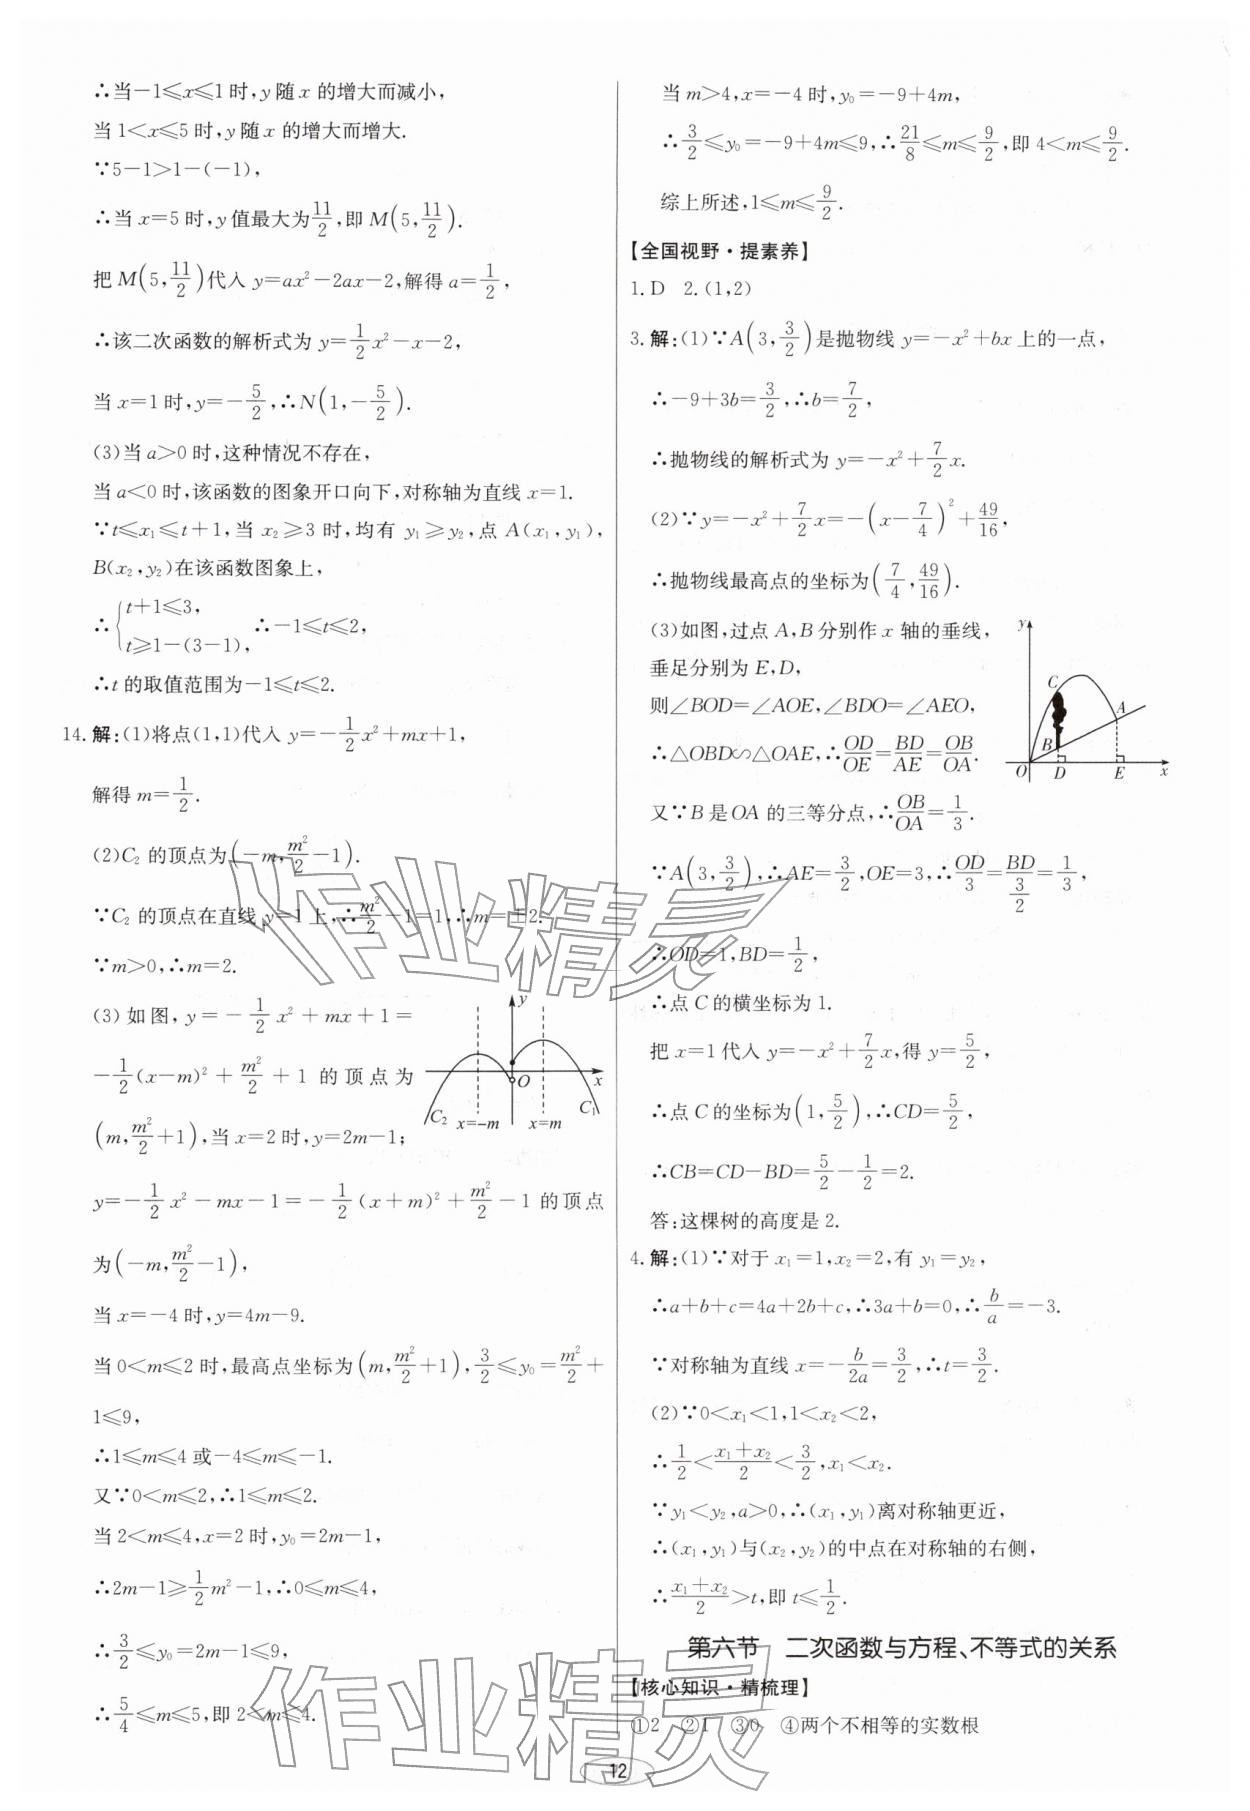 ∴当−1≤x≤1时,y随x的增大而减小,
当1<x≤5时,y随x的增大而增大.
∵5−1>1−(−1),
∴当x=5时,y值最大为11/2,即M(5,11/2).
把M(5,11/2)代入y=ax²−2ax−2,解得a=1/2,
∴该二次函数的解析式为y=1/2x²−x−2,
当x=1时,y=−5/2,∴N(1,−5/2).
(3)当a>0时,这种情况不存在,
当a<0时,该函数的图象开口向下,对称轴为直线x=1.
∵t≤x₁≤t+1,当x₂≥3时,均有y₁≥y₂,点A(x₁,y₁),
B(x₂,y₂)在该函数图象上,
∴{t+1≤3, t≥1−(3−1), ∴−1≤t≤2,
∴t的取值范围为−1≤t≤2.
14.解:(1)将点(1,1)代入y=−1/2x²+mx+1,
解得m=1/2.
(2)C₂的顶点为(−m,m²/2−1).
∵C₂的顶点在直线y=1上,∴m²/2−1=1,∴m=±2.
∵m>0,∴m=2.
(3)如图,y=−1/2x²+mx+1=
−1/2(x−m)²+m²/2+1的顶点为
(m,m²/2+1),当x=2时,y=2m−1;
y
O
x
C₂
x=−m
x=m
C₁
y=−1/2x²−mx−1=−1/2(x+m)²+m²/2−1的顶点
为(−m,m²/2−1),
当x=−4时,y=4m−9.
当0<m≤2时,最高点坐标为(m,m²/2+1),3/2≤y₀=m²/2+
1≤9,
∴1≤m≤4或−4≤m≤−1.
又∵0<m≤2,∴1≤m≤2.
当2<m≤4,x=2时,y₀=2m−1,
∴2m−1≥1/2m²−1,∴0≤m≤4,
∴3/2≤y₀=2m−1≤9,
∴5/4≤m≤5,即2<m≤4.
当m>4,x=−4时,y₀=−9+4m,
∴3/2≤y₀=−9+4m≤9,∴21/8≤m≤9/2,即4<m≤9/2.
综上所述,1≤m≤9/2.
【全国视野·提素养】
1.D 2.(1,2)
3.解:(1)∵A(3,3/2)是抛物线y=−x²+bx上的一点,
∴−9+3b=3/2,∴b=7/2,
∴抛物线的解析式为y=−x²+7/2x.
(2)∵y=−x²+7/2x=−(x−7/4)²+49/16,
∴抛物线最高点的坐标为(7/4,49/16).
(3)如图,过点A,B分别作x轴的垂线,
垂足分别为E,D,
则∠BOD=∠AOE,∠BDO=∠AEO,
∴△OBD∽△OAE,∴OD/OE=BD/AE=OB/OA.
又∵B是OA的三等分点,∴OB/OA=1/3.
y
C
A
B
O
D
E
x
∵A(3,3/2),∴AE=3/2,OE=3,∴OD/3=BD/(3/2)=1/3,
∴OD=1,BD=1/2,
∴点C的横坐标为1.
把x=1代入y=−x²+7/2x,得y=5/2,
∴点C的坐标为(1,5/2),∴CD=5/2,
∴CB=CD−BD=5/2−1/2=2.
答:这棵树的高度是2.
4.解:(1)∵对于x₁=1,x₂=2,有y₁=y₂,
∴a+b+c=4a+2b+c,∴3a+b=0,∴b/a=−3.
∵对称轴为直线x=−b/2a=3/2,∴t=3/2.
(2)∵0<x₁<1,1<x₂<2,
∴1/2<(x₁+x₂)/2<3/2,x₁<x₂.
∵y₁<y₂,a>0,∴(x₁,y₁)离对称轴更近,
∴(x₁,y₁)与(x₂,y₂)的中点在对称轴的右侧,
∴(x₁+x₂)/2>t,即t≤1/2.
第六节 二次函数与方程、不等式的关系
【核心知识·精梳理】
①2 ②1 ③0 ④两个不相等的实数根
12
作业精灵
作业精灵